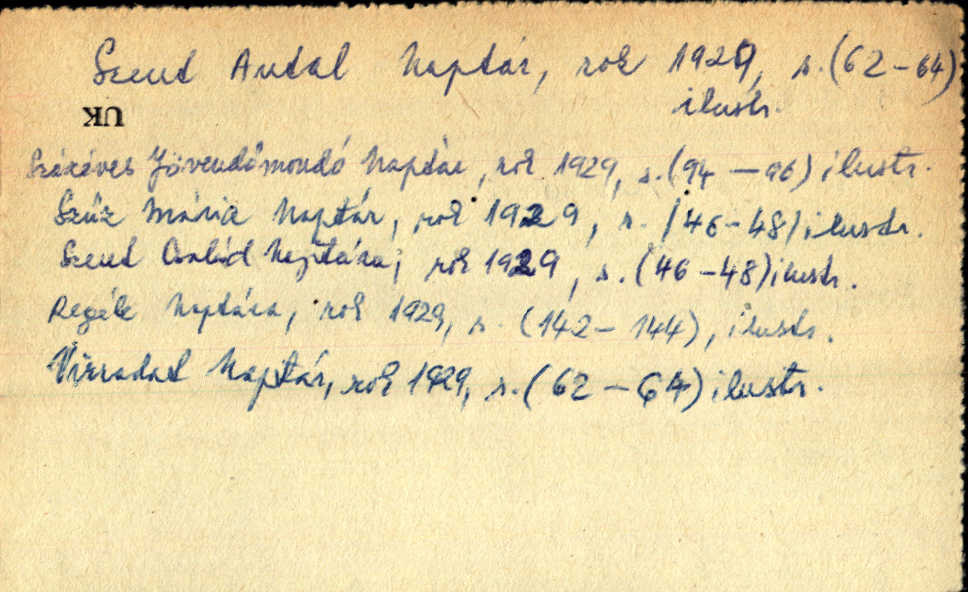 Szent Antal Naptár, rok 1929, s. (62-64)
ilustr.
UK
Százéves Jövendőmondó Naptár, rok 1929, s. (94-96) ilustr.
Szűz Mária Naptár, rok 1929, s. (46-48) ilustr.
Szent Család Naptára, rok 1929, s. (46-48) ilustr.
Regélő Naptára, rok 1929, s. (142-144), ilustr.
Virradat Naptár, rok 1929, s. (62-64) ilustr.